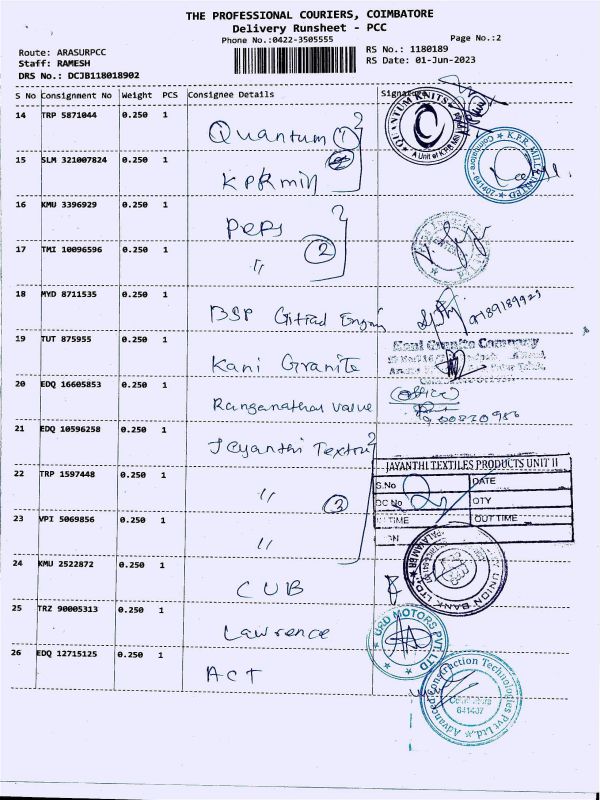 THE PROFESSIONAL COURIERS, COIMBATORE
Delivery Runsheet - PCC
Phone No.:0422-3505555
Page No.:2
Route: ARASURPCC
RS No.: 1180189
Staff: RAMESH
RS Date: 01-Jun-2023
DRS No.: DCJB118018902
S No Consignment No Weight PCS Consignee Details Signature
14 TRP 5871044 0.250 1 Quantum 1
QUANTUM KNITS
A Unit of K.P.R. MILL
15 SLM 321007824 0.250 1 KPR mill
K.P.R. MILL LIMITED
Coimbatore - 641407
16 KMU 3396929 0.250 1 Peps
17 TMI 10096596 0.250 1 " 2
18 MYD 8711535 0.250 1 BSP
19 TUT 875955 0.250 1 Kani Granite
Kani Granite Company
20 EDQ 16605853 0.250 1 Ranganathar valve
(office)
21 EDQ 10596258 0.250 1 Jeyanthi
JAYANTHI TEXTILES PRODUCTS UNIT II
S.No DATE
DC No QTY
IN TIME OUT TIME
22 TRP 1597448 0.250 1 "
23 VPI 5069856 0.250 1 " 3
24 KMU 2522872 0.250 1 CUB
UNION BANK LTD
25 TRZ 90005313 0.250 1 Lawrence
URD MOTORS PVT. LTD
26 EDQ 12715125 0.250 1 ACT
Advanced Construction Technologies Pvt Ltd
641407